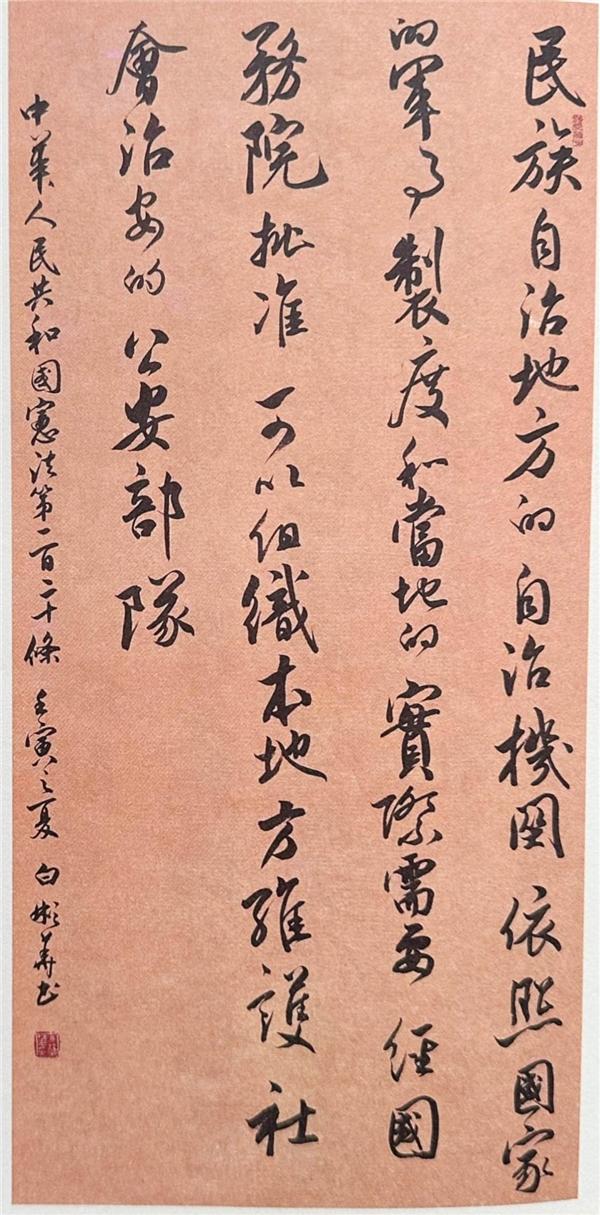 民族自治地方的自治機関依照國家
的軍事製度和當地的實際需要經國
務院批准可以組織本地方維護社
會治安的公安部隊
中華人民共和國憲法第一百二十條壬寅之夏白彬華書